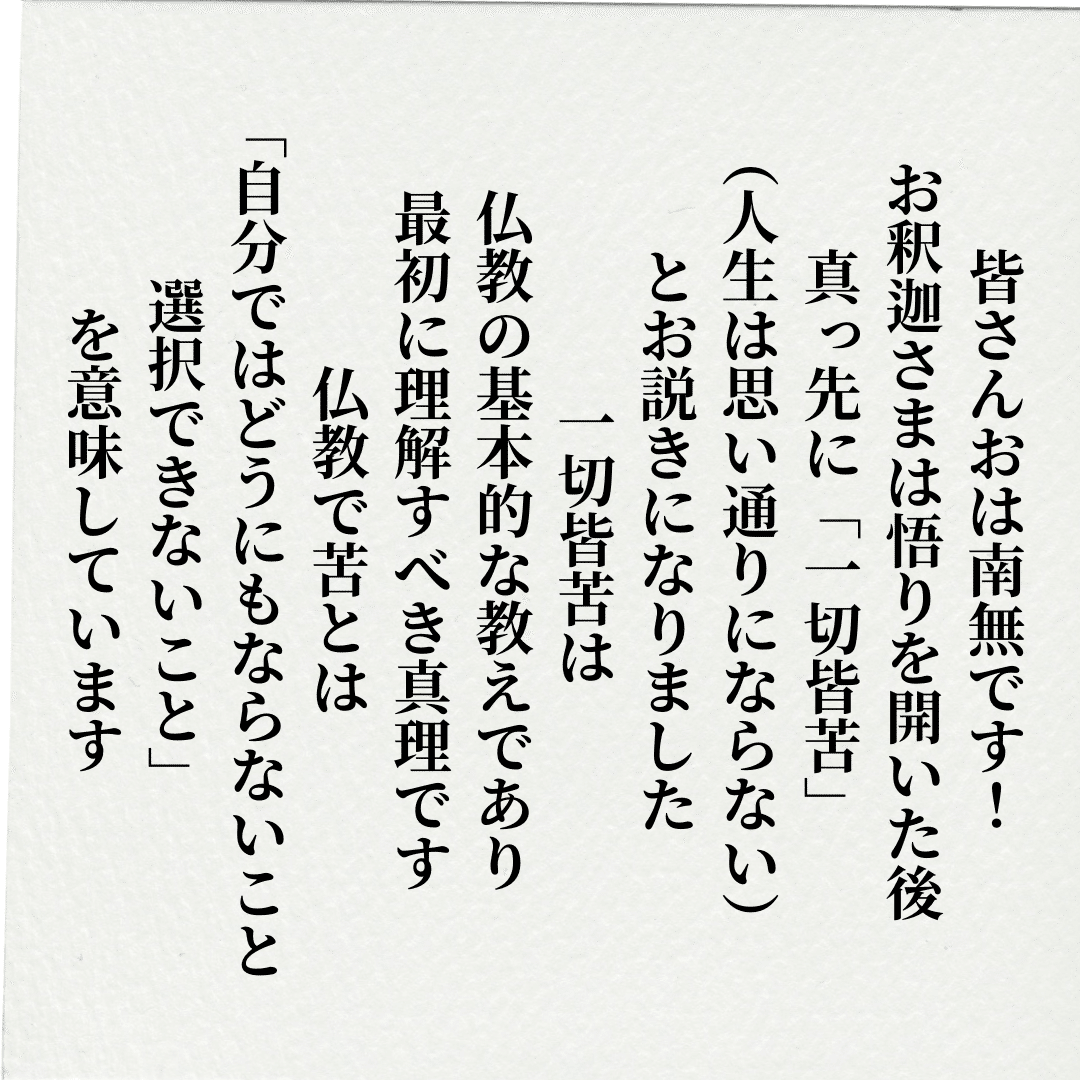 皆さんおは南無です！
お釈迦さまは悟りを開いた後
真っ先に「一切皆苦」
（人生は思い通りにならない）
とお説きになりました
一切皆苦は
仏教の基本的な教えであり
最初に理解すべき真理です
仏教で苦とは
「自分ではどうにもならないこと
選択できないこと」
を意味しています